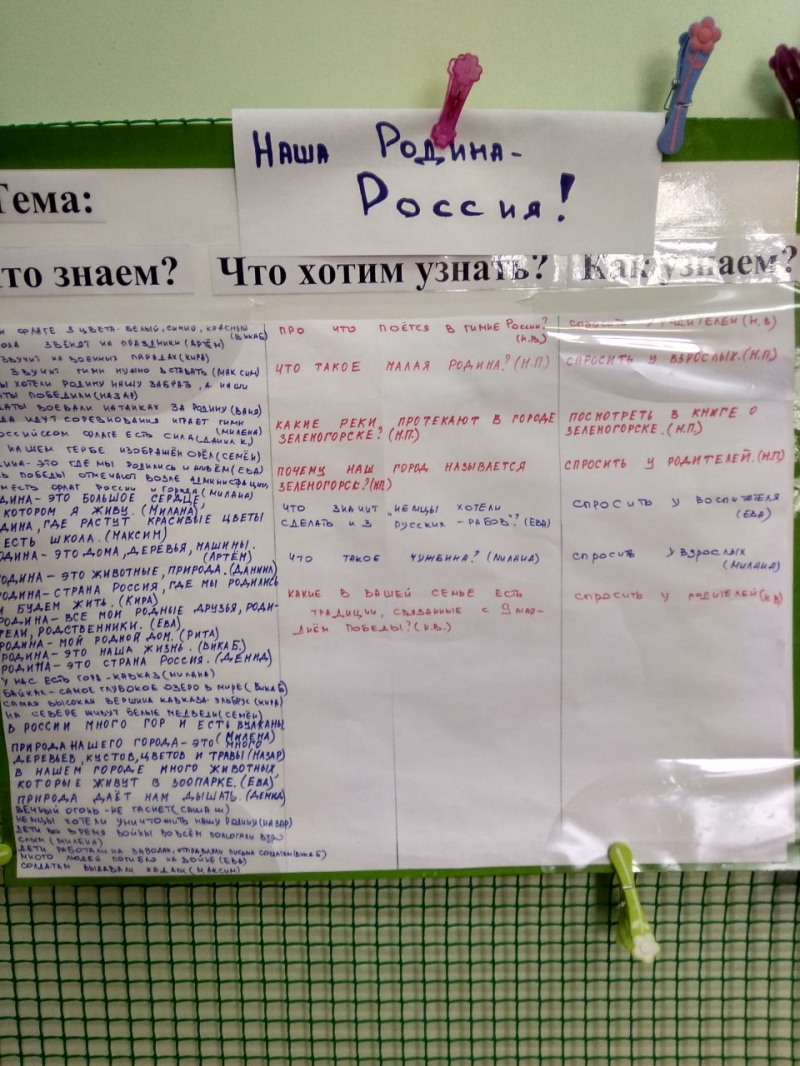 Наша Родина-
Россия!
Тема:
то знаем?
Что хотим узнать?
Как узнаем?
и флаге 3 цвета- белый, синий, красный
(Вика Б)
ола звенят на праздники (Артём)
звучит на военных парадах (Кира)
звучит гимн нужно вставать (Максим)
ы хотели Родину нашу забрать, а наши
ты победили (Назар)
даты воевали на танках за Родину (Ваня)
да идут соревнования играет гимн
(Милена)
оссийском флаге есть сила (Данил К.)
на нашем гербе изображён орёл (Семён)
дина- это где мы родились и живём (Ева)
ь победы отмечают возле администрации,
месть флаг России и города (Милана)
одина- это большое сердце
котором я живу. (Милана)
дина, где растут красивые цветы
есть школа. (Максим)
одина- это дома, деревья, машины.
(Артём)
одина- это животные, природа. (Данил)
родина- страна Россия, где мы родились
и будем жить. (Кира)
родина- все мои родные друзья, роди-
тели, родственники. (Ева)
родина- мой родной дом. (Рита)
родина- это наша жизнь. (Вика Б.)
родина- это страна Россия. (Демид)
у нас есть гора- Кавказ (Милана)
Байкал- самое глубокое озеро в мире (Вика Б)
самая высокая вершина Кавказа- Эльбрус (Кира)
на севере живут белые медведи (Семён)
В России много гор и есть вулканы
(Милена)
природа нашего города- это много
деревьев, кустов, цветов и травы (Назар)
В нашем городе много животных,
которые живут в зоопарке. (Ева)
природа даёт нам дышать. (Демид)
Вечный огонь- не гаснет (Саша Ш)
немцы хотели уничтожить нашу Родину (Назар)
дети во время войны во всём помогали взро
слым (Милена)
дети работали на заводах, отправляли письма солдатам (Вика Б)
много людей погибло на войне (Ева)
солдатам выдавали медали (Максим)
про что поётся в гимне России?
(Н.В.)
что такое малая родина? (Н.П.)
какие реки протекают в городе
Зеленогорске? (Н.П.)
почему наш город называется
Зеленогорск? (Н.П.)
что значит „немцы хотели
сделать из русских – рабов"? (Ева)
что такое чужбина? (Милана)
какие в вашей семье есть
традиции, связанные с 9 мая-
Днём Победы? (Н.В.)
спросить у родителей (Н.В)
спросить у взрослых. (Н.П.)
посмотреть в книге о
Зеленогорске. (Н.П.)
спросить у родителей. (Н.П)
спросить у воспитателя
(Ева)
спросить у взрослых
(Милана)
спросить у родителей (Н.В)